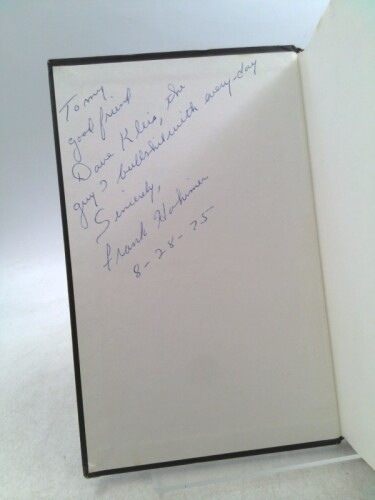 To my
good friend
Dave Klus, the
guy I bullshit with every-day
Sincerely,
Frank Hohimer
8-28-75